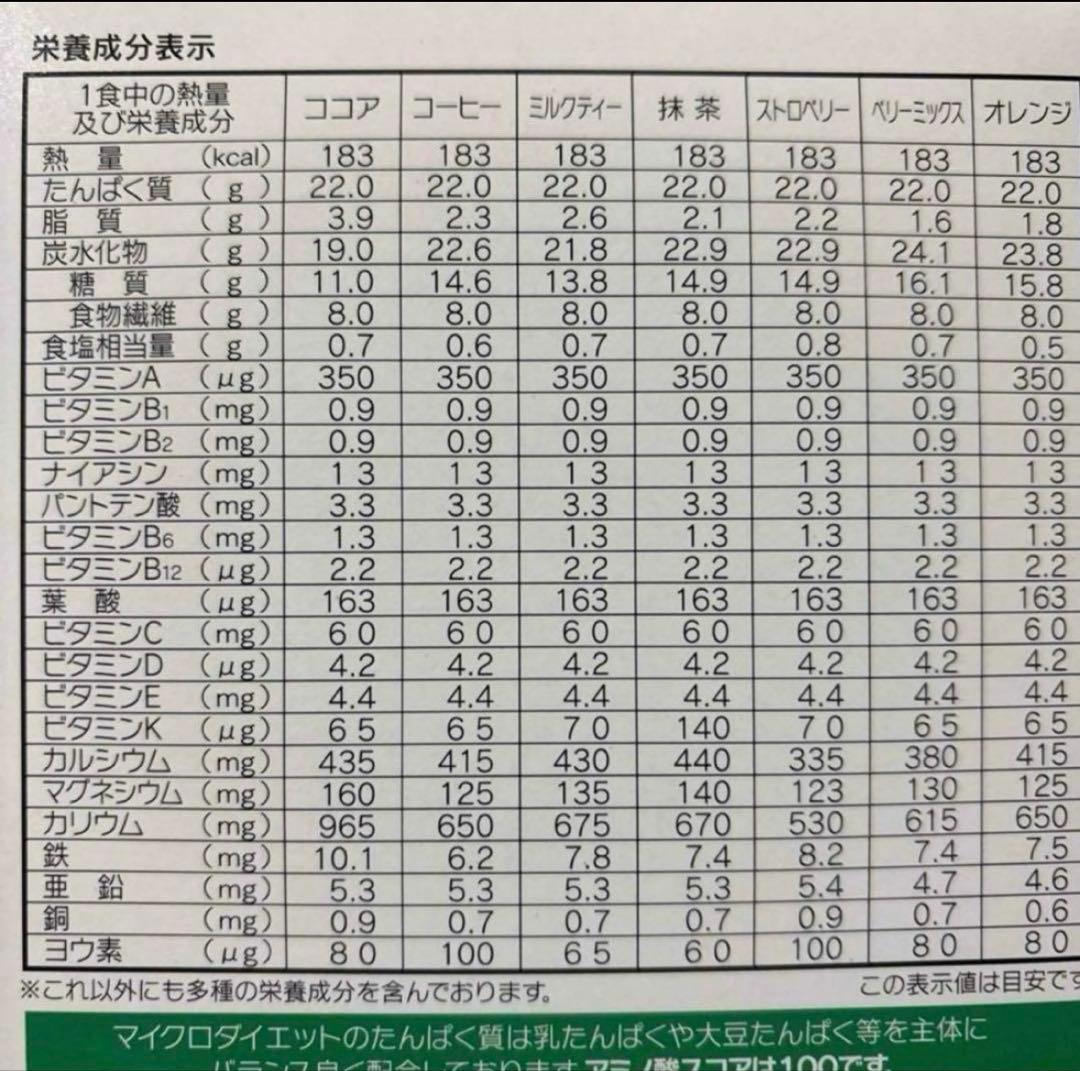 栄養成分表示
1食中の熱量
及び栄養成分 ココア コーヒー ミルクティー 抹茶 ストロベリー ベリーミックス オレンジ
熱量 (kcal) 183 183 183 183 183 183 183
たんぱく質 (g) 22.0 22.0 22.0 22.0 22.0 22.0 22.0
脂質 (g) 3.9 2.3 2.6 2.1 2.2 1.6 1.8
炭水化物 (g) 19.0 22.6 21.8 22.9 22.9 24.1 23.8
糖質 (g) 11.0 14.6 13.8 14.9 14.9 16.1 15.8
食物繊維 (g) 8.0 8.0 8.0 8.0 8.0 8.0 8.0
食塩相当量 (g) 0.7 0.6 0.7 0.7 0.8 0.7 0.5
ビタミンA (μg) 350 350 350 350 350 350 350
ビタミンB1 (mg) 0.9 0.9 0.9 0.9 0.9 0.9 0.9
ビタミンB2 (mg) 0.9 0.9 0.9 0.9 0.9 0.9 0.9
ナイアシン (mg) 13 13 13 13 13 13 13
パントテン酸 (mg) 3.3 3.3 3.3 3.3 3.3 3.3 3.3
ビタミンB6 (mg) 1.3 1.3 1.3 1.3 1.3 1.3 1.3
ビタミンB12 (μg) 2.2 2.2 2.2 2.2 2.2 2.2 2.2
葉酸 (μg) 163 163 163 163 163 163 163
ビタミンC (mg) 60 60 60 60 60 60 60
ビタミンD (μg) 4.2 4.2 4.2 4.2 4.2 4.2 4.2
ビタミンE (mg) 4.4 4.4 4.4 4.4 4.4 4.4 4.4
ビタミンK (μg) 65 65 70 140 70 65 65
カルシウム (mg) 435 415 430 440 335 380 415
マグネシウム (mg) 160 125 135 140 123 130 125
カリウム (mg) 965 650 675 670 530 615 650
鉄 (mg) 10.1 6.2 7.8 7.4 8.2 7.4 7.5
亜鉛 (mg) 5.3 5.3 5.3 5.3 5.4 4.7 4.6
銅 (mg) 0.9 0.7 0.7 0.7 0.9 0.7 0.6
ヨウ素 (μg) 80 100 65 60 100 80 80
※これ以外にも多種の栄養成分を含んでおります。 この表示値は目安です
マイクロダイエットのたんぱく質は乳たんぱくや大豆たんぱく等を主体に
バランス良く配合しております。アミノ酸スコアは100です。